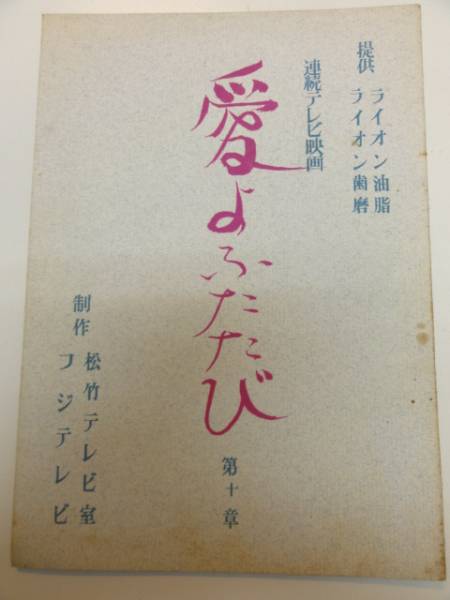 提供 ライオン油脂
ライオン歯磨
連続テレビ映画
愛よふたたび
第十章
制作 松竹テレビ室
フジテレビ